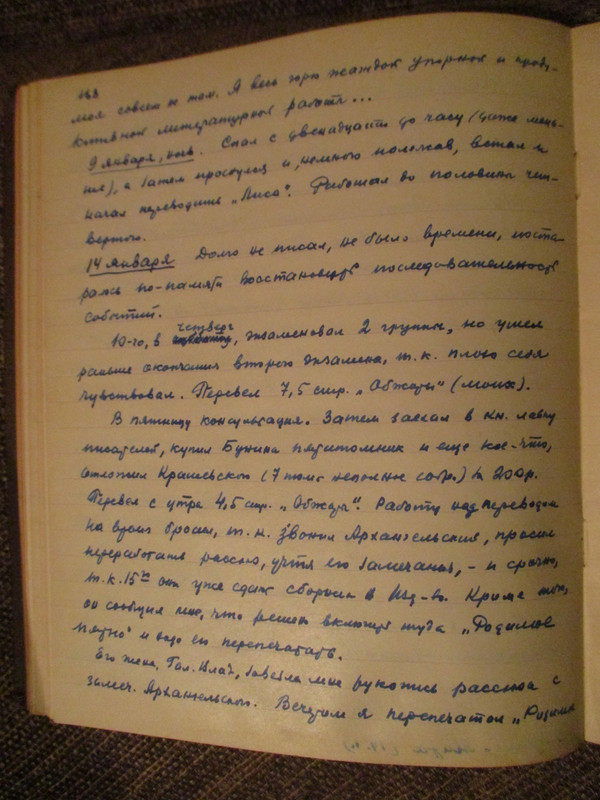 168
моя совсем не том. Я весь горю жаждой упорной и проду-
ктивной литературной работы...
9 января, ночь. Спал с двенадцати до часу (даже мень-
ше), а затем проснулся и, немного полежав, встал и
начал переводить „Лиса". Работал до половины чет-
вертого.
14 января Долго не писал, не было времени, поста-
раюсь по-памяти восстановить последовательность
событий.
10-го, в четверг, экзаменовал 2 группы, но ушел
раньше окончания второго экзамена, т.к. плохо себя
чувствовал. Перевел 7,5 стр. „Обжоры" (моих).
В пятницу консультация. Затем заехал в кн. лавку
писателей, купил Бунина пятитомник и еще кое-что,
отложил Крашевского (7 томов неполное собр.) за 200 р.
Перевел с утра 4,5 стр. „Обжоры". Работу над переводом
на время бросил, т.к. звонил Архангельский, просил
переработать рассказ, учтя его замечания, – и срочно,
т.к. 15го он уже сдает сборник в Изд-во. Кроме того,
он сообщил мне, что решено включить туда „Родимое
пятно" и надо его перепечатать.
Его жена, Гал. завезла мне рукопись рассказа с
замеч. Архангельского. Вечером я перепечатал „Родимое